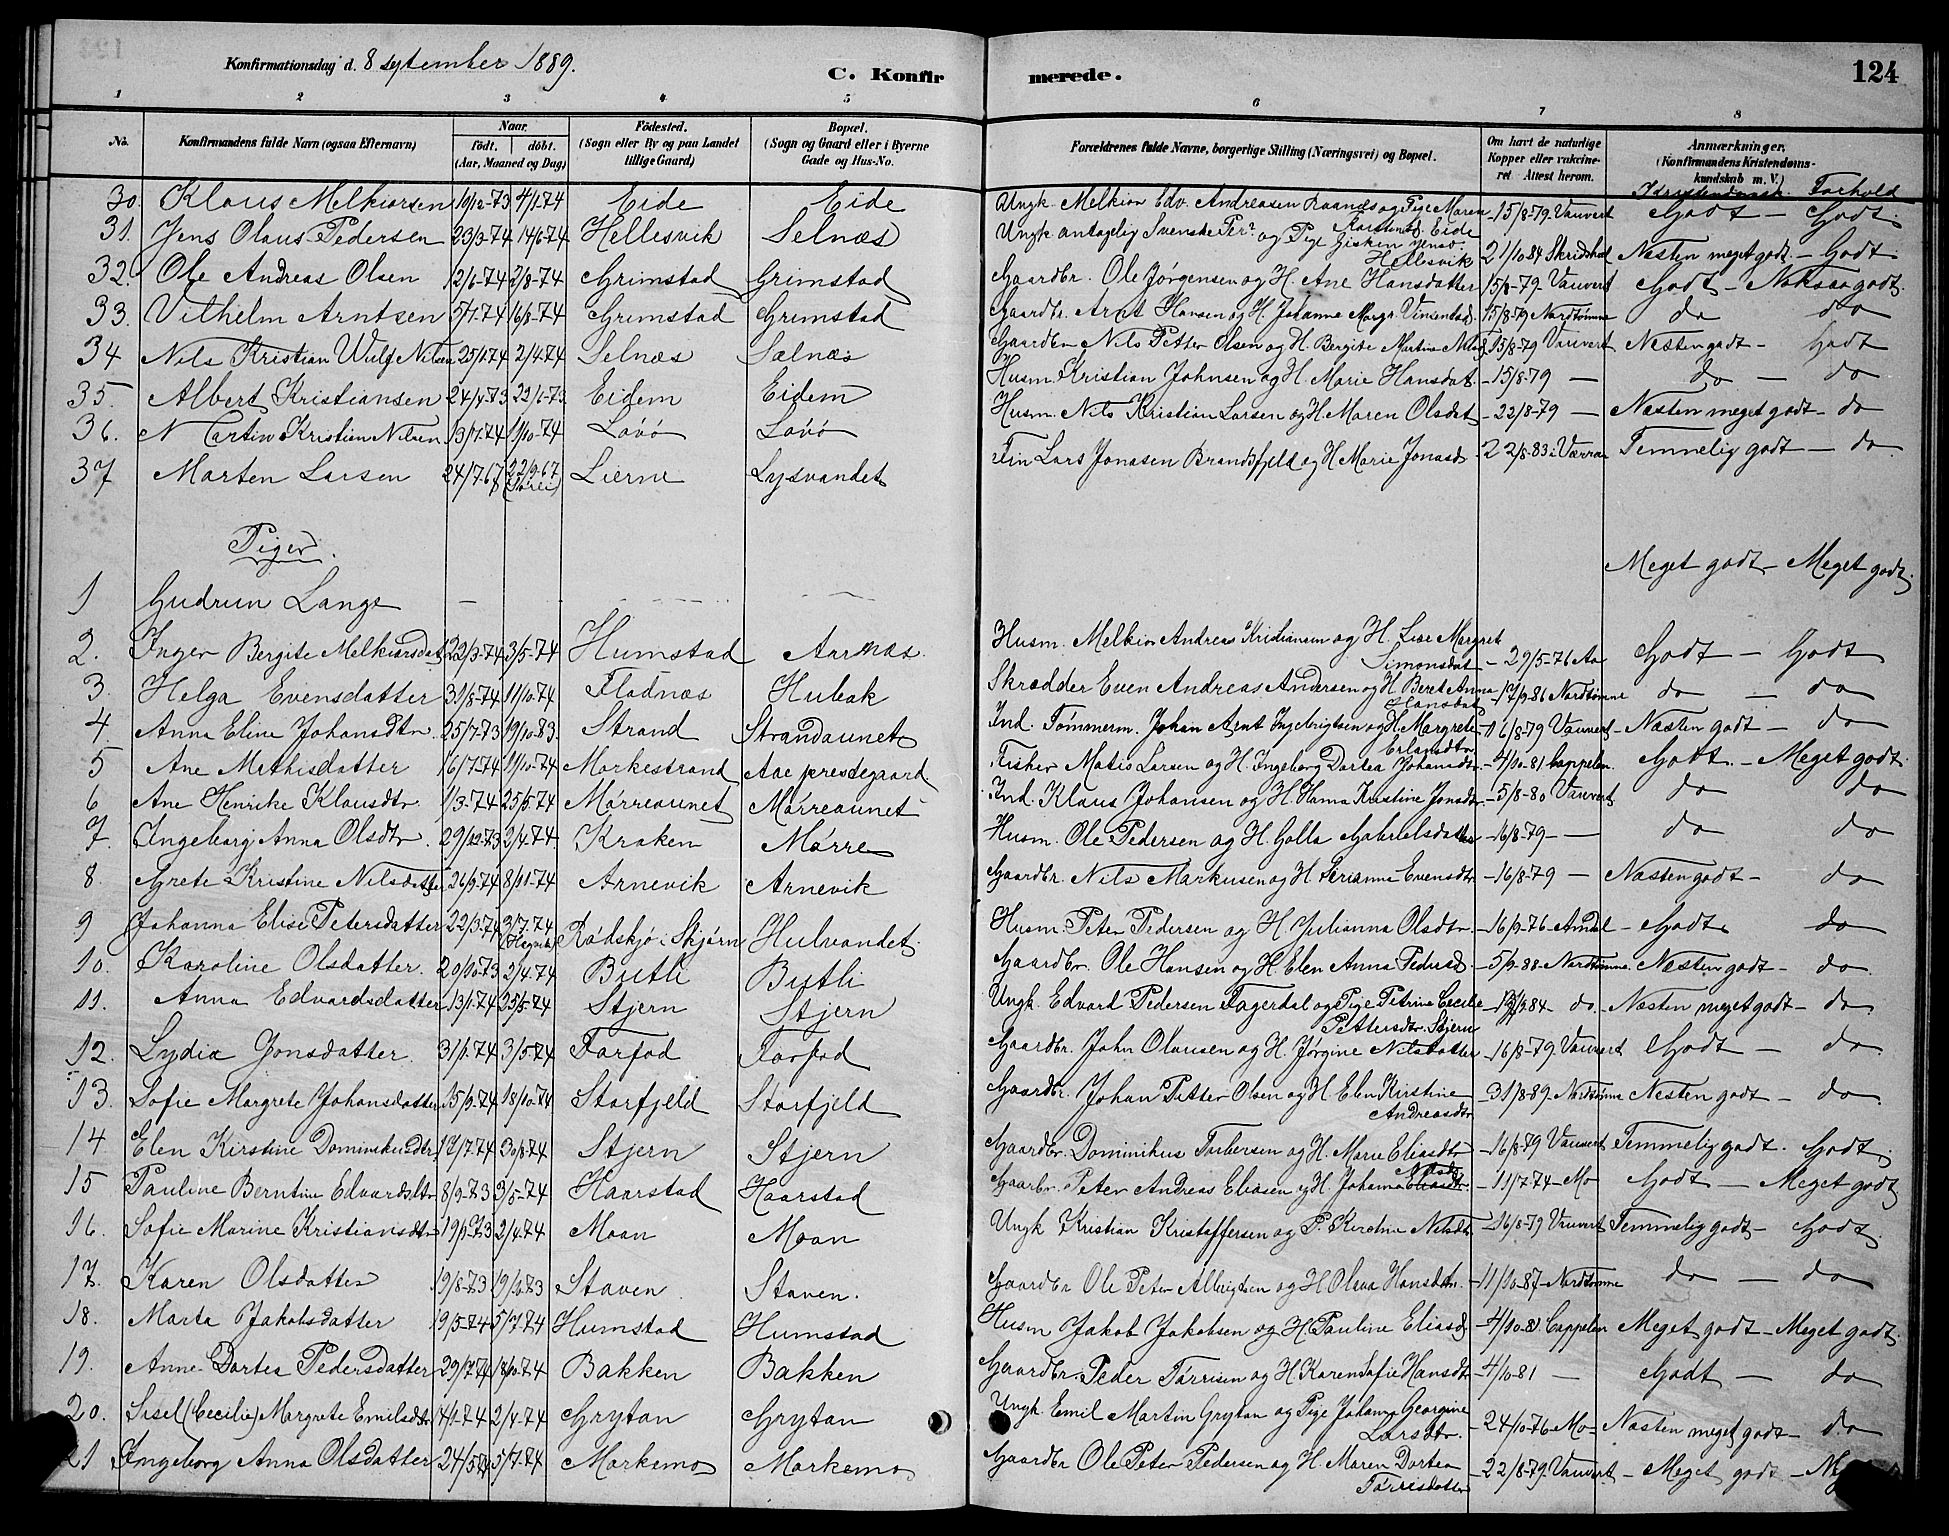 Konfirmationsdag d. 8 september 1889.
C. Konfir
merede.
124
1 2 3 4 5 6 7 8
No. Konfirmandens fulde Navn (ogsaa Efternavn) Naar født. døbt. (Aar, Maaned og Dag) Fødested. (Sogn eller By og paa Landet tillige Gaard) Bopæl. (Sogn og Gaard eller i Byerne Gade og Hus-No. Forældrenes fulde Navne, borgerlige Stilling (Næringsvei) og Bopæl. Om havt de naturlige Kopper eller vakcineret Attest herom. Anmærkninger. (Konfirmandens Kristendomskundskab m. V.)
Kristendomsk. Forhold
30. Klaus Melkiorsen 10/12-73 4/1-74 Eide Eide Ungk. Melkior Edv. Andreasen og Pige Maren Eide -15/8-79 Vauvert Godt - Godt.
31. Jens Olaus Pedersen 23/3-74 14/6-74 Hellesvik Selnæs Ungk. antagelig Svenske Per og Pige Gisken Jensd. Hellesvik 21/10 84 Næsten meget godt - Godt
32. Ole Andreas Olsen 12/6-74 2/8-74 Grimstad Grimstad Gaardbr. Ole Jørgensen og H. Ane Hansdatter 15/8-79 Vauvert Godt - Noksaa godt.
33. Vilhelm Arntsen 5/7-74 16/8-74 Grimstad Grimstad Gaardbr. Arnt Hansen og H. Johanna Margr. 15/8-79 Nordtømme do do
34 Nils Kristian Wulf Nilsen 25/1-74 2/4-74 Selnæs Selnæs Gaardbr Nils Petter Olsen og H. Bergite Martine 15/8-79 Vauvert Næsten godt - Godt
35. Albert Kristiansen 24/4-73 22/6-73 Eidem Eidem Husm. Kristian Johnsen og H. Marie Hansdat. -15/8-79 — do — do
36. Martin Kristian Nilsen 13/7-74 11/10-74 Lovø Lovø Husm. Nils Kristian Larsen og H. Maren Olsdat - 22/8-79 — Næsten meget godt - do
37 Morten Larsen 24/7-67 22/9-67 Lierne Lysvandet Fin Lars Jonasen Brandsfjeld og H Marie Jonasd. 22/8-83 i Værran Temmelig godt - do
Piger.
1 Gudrun Lange — Meget godt - Meget godt.
2. Inger Bergite Melkiorsdat 22/3-74 3/5-74 Humstad Aarnæs. Husm. Melkior Andreas Kristiansen og H. Lise Margret Simonsdat - 29/5-76 Aa Godt — Godt
3. Helga Evensdatter 31/8-74 11/10-74 Fladnæs Hubak Skrædder Even Andreas Andersen og H Beret Anna Hansdat -17/9-86 Nordtømme do — do
4 Anna Eline Johansdtr. 25/7-73 19/10-83. Strand Strandaunet Ind. Tømmerm. Johan Arnt Ingebrigtsen og H. Margrete Erlandsdtr -16/8-79 Vauvert - Næsten godt - do
5 Ane Mathisdatter 16/7-74 11/10-74 Markestrand Aae prestegaard. Fisker Matis Larsen og H. Ingeborg Dortea Johansdtr -4/10-81 Cappelen. Godt. - Meget godt
6 Ane Henrike Klausdtr. 1/3-74 25/5-74 Mørreaunet Mørreaunet Ind. Klaus Johansen og H. Hanna Kristine Jonsdtr -5/8-80 Vauvert do do
7. Ingeborg Anna Olsdtr. 29/12-73 2/4-74 Kraken Mørre Husm. Ole Pedersen og H. Golla Gabrielsdatter -16/8-79 — do do
8. Grete Kristine Nilsdatter 26/9-74 8/11-74 Arnevik Arnevik Gaardbr. Nils Markusen og H Serianna Evensdtr -16/8-79 — Næsten godt - do
9 Johanna Elise Petersdatter 22/3-74 3/7-74 Rødskjø i Stjørn Hulvandet. Husm. Peter Pedersen og H. Julianna Olsdtr. -16/9-76 - Godt do
10. Karoline Olsdatter. 20/10-73 2/4-74 Butli Butli Gaardbr. Ole Hansen og H. Elen Anna Pedersd. -5/9-88 - Nordtømme. Næsten godt - do.
11. Anna Edvardsdatter 13/1-74 25/5-74 Stjern Stjern Ungk. Edvard Pedersen Fagerdal og Pige Petrine Cecilie Pettersdtr. Stjern do. - Næsten meget godt - do
12. Lydia Jonsdatter. 31/1-74 3/5-74 Farfod Farfod Gaardbr. John Olausen og H. Jørgine Nilsdatter -16/8-79 Vauvert Godt — do
13. Sofie Margrete Johansdatter 15/9-74 18/10-74 Storfjeld Storfjeld Gaardbr. Johan Petter Olsen og H. Elen Kirstine Andreasdtr -31/8-89. Nordtømme Næsten godt - do
14 Elen Kirstine Dominikusdtr. 17/7-74 30/8-74 Stjern Stjern Gaardbr. Dominikus Torbersen og H. Marie Eliasdtr -16/8-79 Vauvert Temmelig godt. Godt
15 Pauline Berntine Edvardsdtr 8/9-73 3/5-74 Haarstad Haarstad Gaarbr. Peter Andreas Eliasen og H. Johanna -11/7-74 - Mo Godt — Meget godt
16. Sofie Marine Kristiansdtr 2/4-74 Moan Moan Ungk Kristian Kristoffersen og P. Nilsdtr -16/8-79 Vauvert Temmelig godt - Godt
17. Karen Olsdatter 19/8-73 19/10-73 Staven. Staven. Gaardbr Ole Peter Albrigtsen og H Olava Hansdtr. -11/10-87 - Nordtømme do — do
18. Marta Jakobsdatter 19/5-74 5/7-74 Humstad Humstad Husm Jakob Jakobsen og H. Pauline Eliasd -4/10-81 Cappelen Meget godt - Meget godt.
19. Anne Dortea Pedersdatter Bakken Bakken Gaardbr. Peder Tørrisen og H Karen Sofie Hansdtr -4/10-81 — Godt — do
20. Sisel (Cecilie) Margrete Emilsdtr 14/1-74 2/4-74 Grytan Grytan Ungk Emil Martin Grytan og Pige Johanna Georgine Larsdtr. -24/10-76 - Mo - Næsten meget godt - do
21 Ingeborg Anna Olsdatter 24/5-74 5/7-74 Markemo Markemo Gaardbr Ole Peter Pedersen og H. Maren Dortea Tørrisdatter -22/8-79 Vauvert - Meget godt -